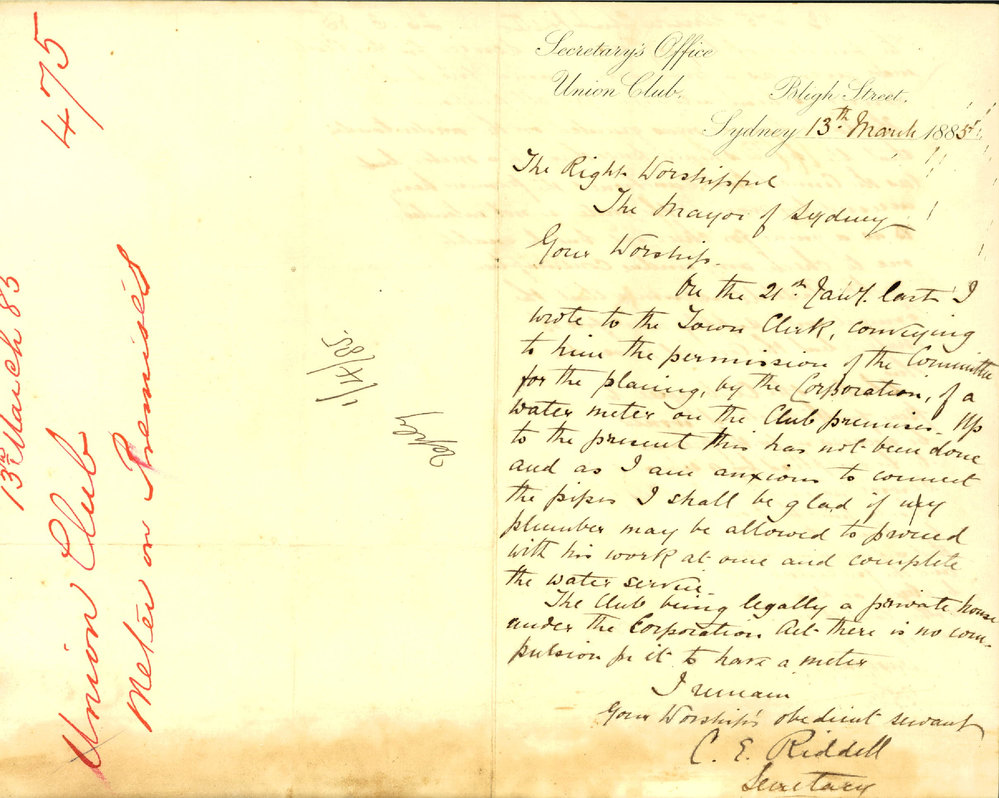 475
13th March 85
Union Club
Meter on Premises
1/4/85.
Secretary's Office
Union Club.
Bligh Street.
Sydney 13th March 1885
The Right Worshipful
The Mayor of Sydney
Your Worship.
On the 21st Jany. last I
wrote to the Town Clerk, conveying
to him the permission of the Committee
for the placing, by the Corporation, of a
water meter on the Club premises. Up
to the present this has not been done
and as I am anxious to connect
the pipes I shall be glad if my
plumber may be allowed to proceed
with his work at one and complete
the water service.
The Club being legally a private house
under the Corporation Act there is no com-
pulsion for it to have a meter
I remain
Your Worship's obedient servant
C. E. Riddell
Secretary